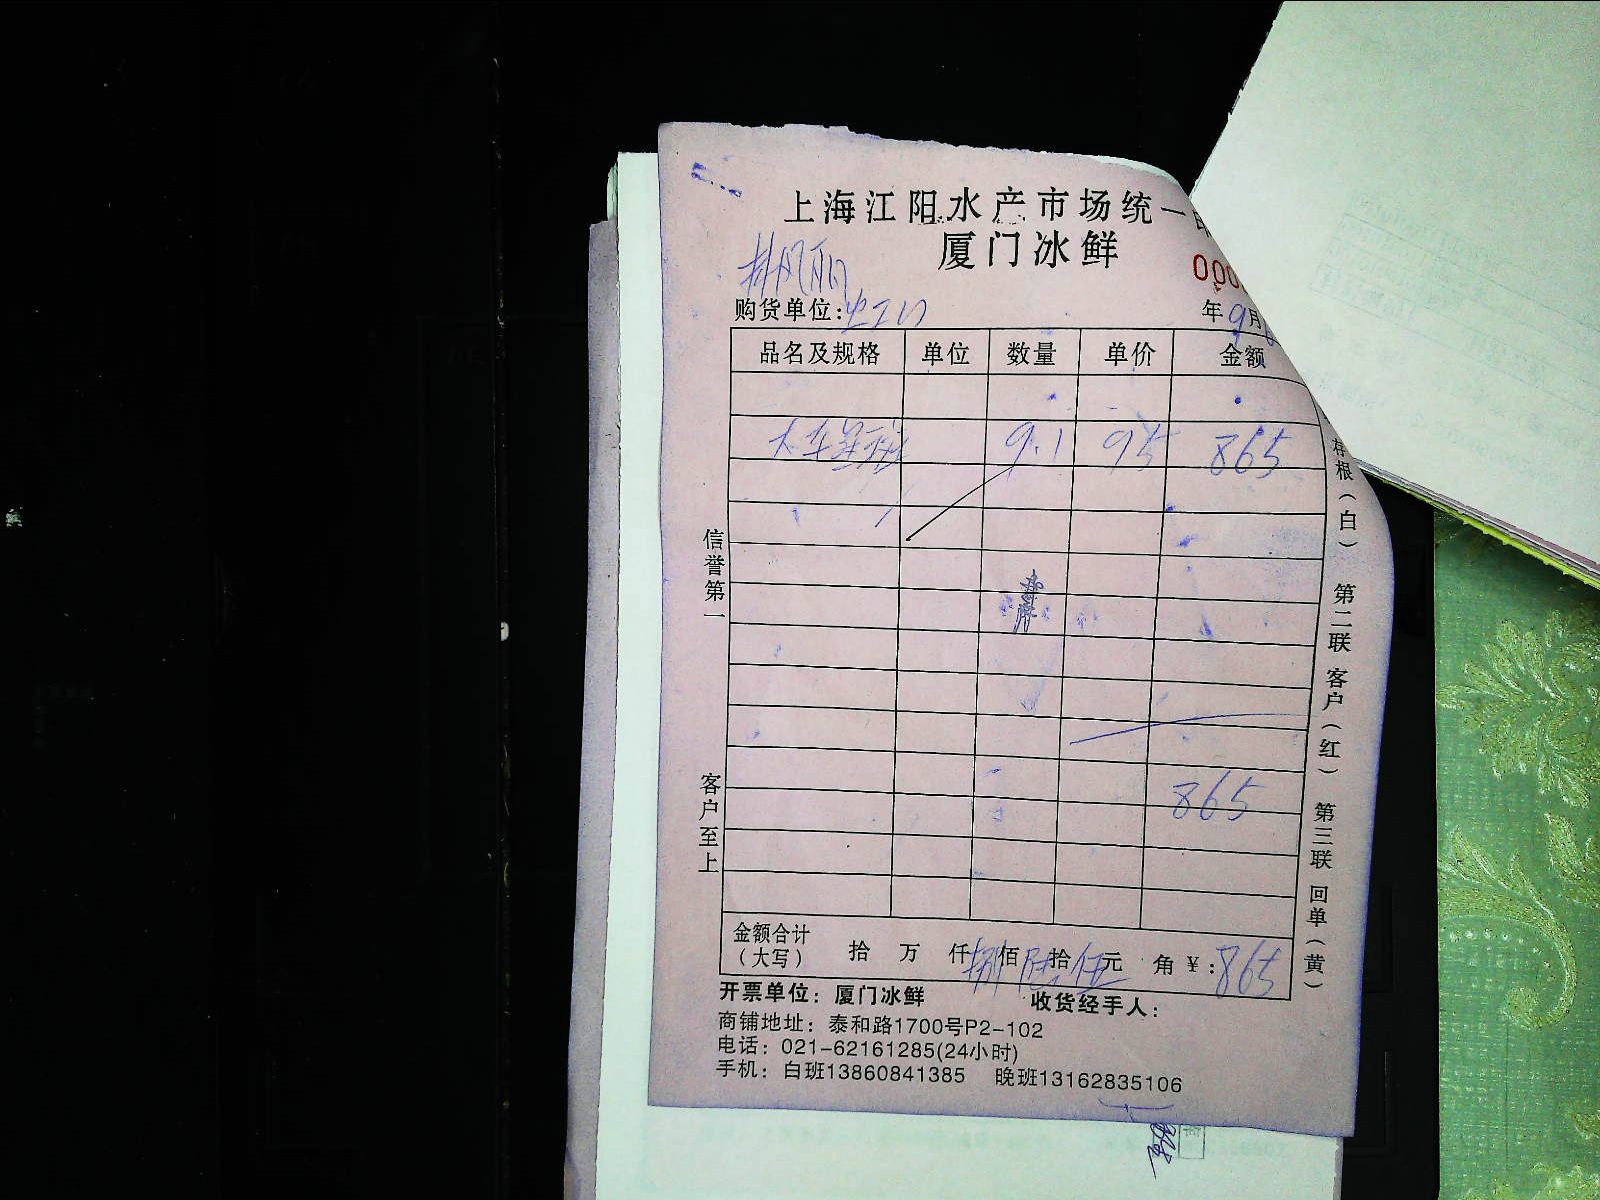 上海江阳水产市场统一印
厦门冰鲜
000
购货单位:
年9月
品名及规格 单位 数量 单价 金额
9.1 95 865
865
金额合计(大写) 拾 万 仟捌佰陆拾伍元 角 ¥:865
开票单位:厦门冰鲜 收货经手人:
商铺地址:泰和路1700号P2-102
电话:021-62161285(24小时)
手机:白班13860841385 晚班13162835106
信誉第一 客户至上
存根(白) 第二联 客户(红) 第三联 回单(黄)